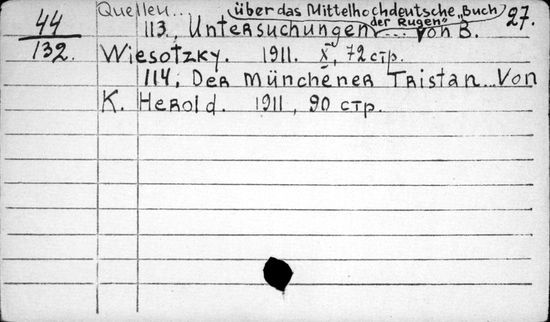 44
132.
Quellen...
27.
über das Mittelhochdeutsche „Buch
der Rügen"
113, Untersuchungen .... von B.
Wiesotzky. 1911. X, 72 стр.
114, Der Münchener Tristan... Von
K. Herold. 1911, 90 стр.